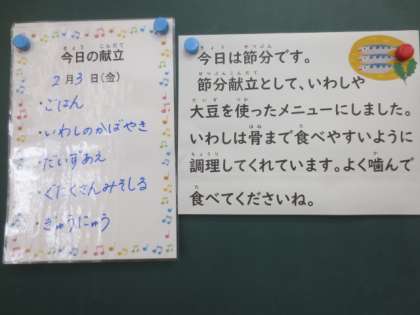 今日の献立
2月3日(金)
・ごはん
・いわしのかばやき
・だいずあえ
・ぐだくさんみそしる
・ぎゅうにゅう
今日は節分です。
節分献立として、いわしや
大豆を使ったメニューにしました。
いわしは骨まで食べやすいように
調理してくれています。よく噛んで
食べてくださいね。